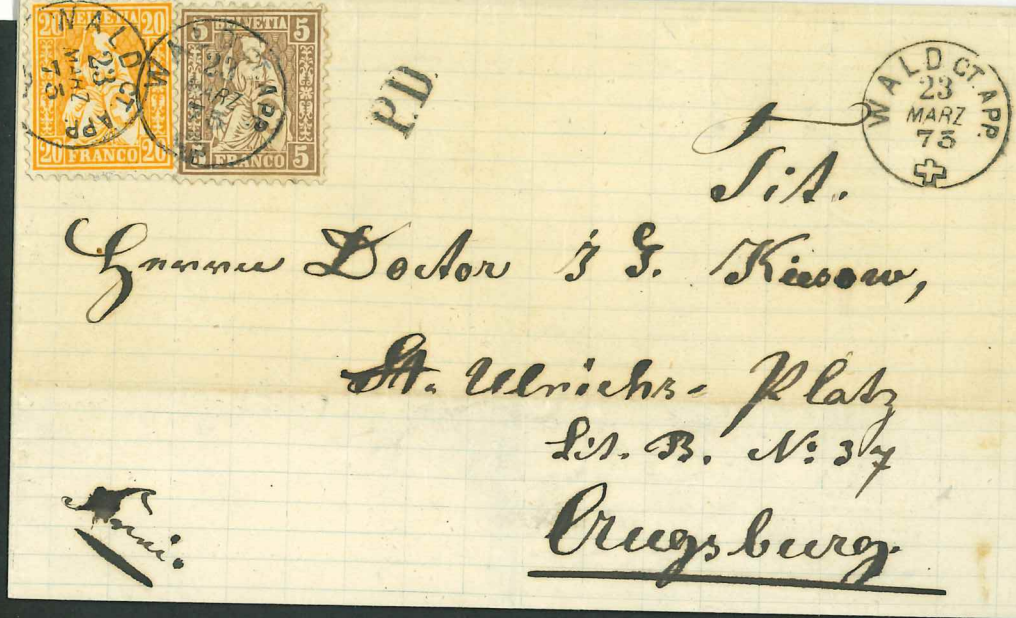 20 HELVETIA 20
20 FRANCO 20
WALD CT. APP.
23
MARZ
75
5 HELVETIA 5
5 FRANCO 5
P.D
WALD CT. APP.
23
MARZ
75
Tit.
Herrn Doctor J G. Kiesow,
St. Ulrichs- Platz
Lit. B. No: 37
Augsburg.